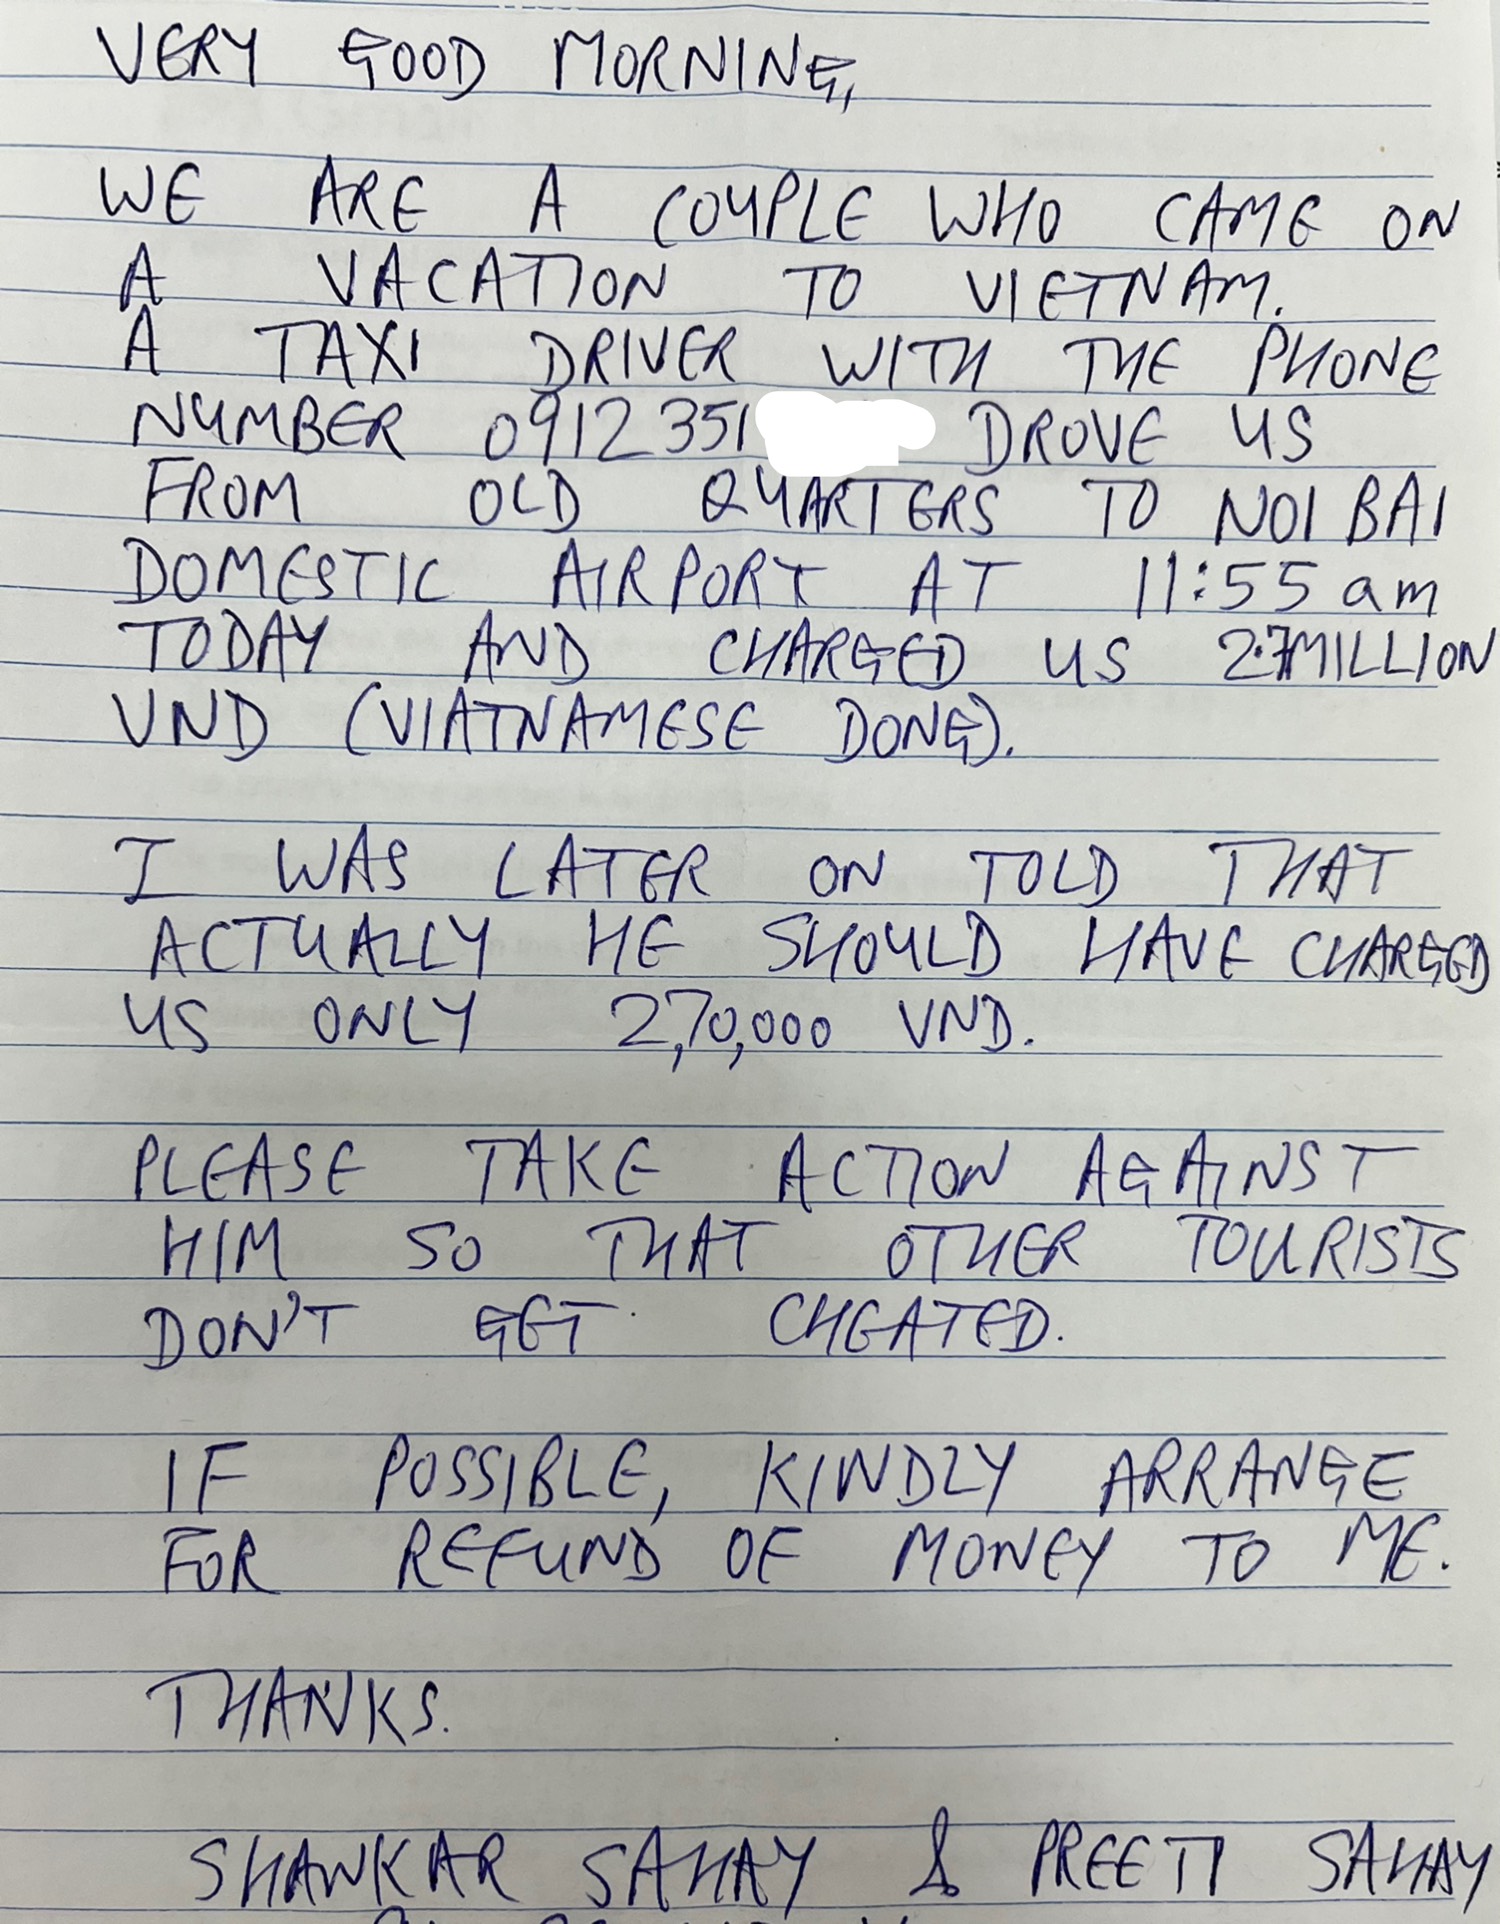 VERY GOOD MORNING,
WE ARE A COUPLE WHO CAME ON
A VACATION TO VIETNAM.
A TAXI DRIVER WITH THE PHONE
NUMBER 0912 351 DROVE US
FROM OLD QUARTERS TO NOI BAI
DOMESTIC AIRPORT AT 11:55 am
TODAY AND CHARGED US 2.7 MILLION
VND (VIATNAMESE DONG).
I WAS LATER ON TOLD THAT
ACTUALLY HE SHOULD HAVE CHARGED
US ONLY 2,70,000 VND.
PLEASE TAKE ACTION AGAINST
HIM SO THAT OTHER TOURISTS
DON'T GET CHEATED.
IF POSSIBLE, KINDLY ARRANGE
FOR REFUND OF MONEY TO ME.
THANKS.
SHANKAR SAHAY & PREETI SAHAY